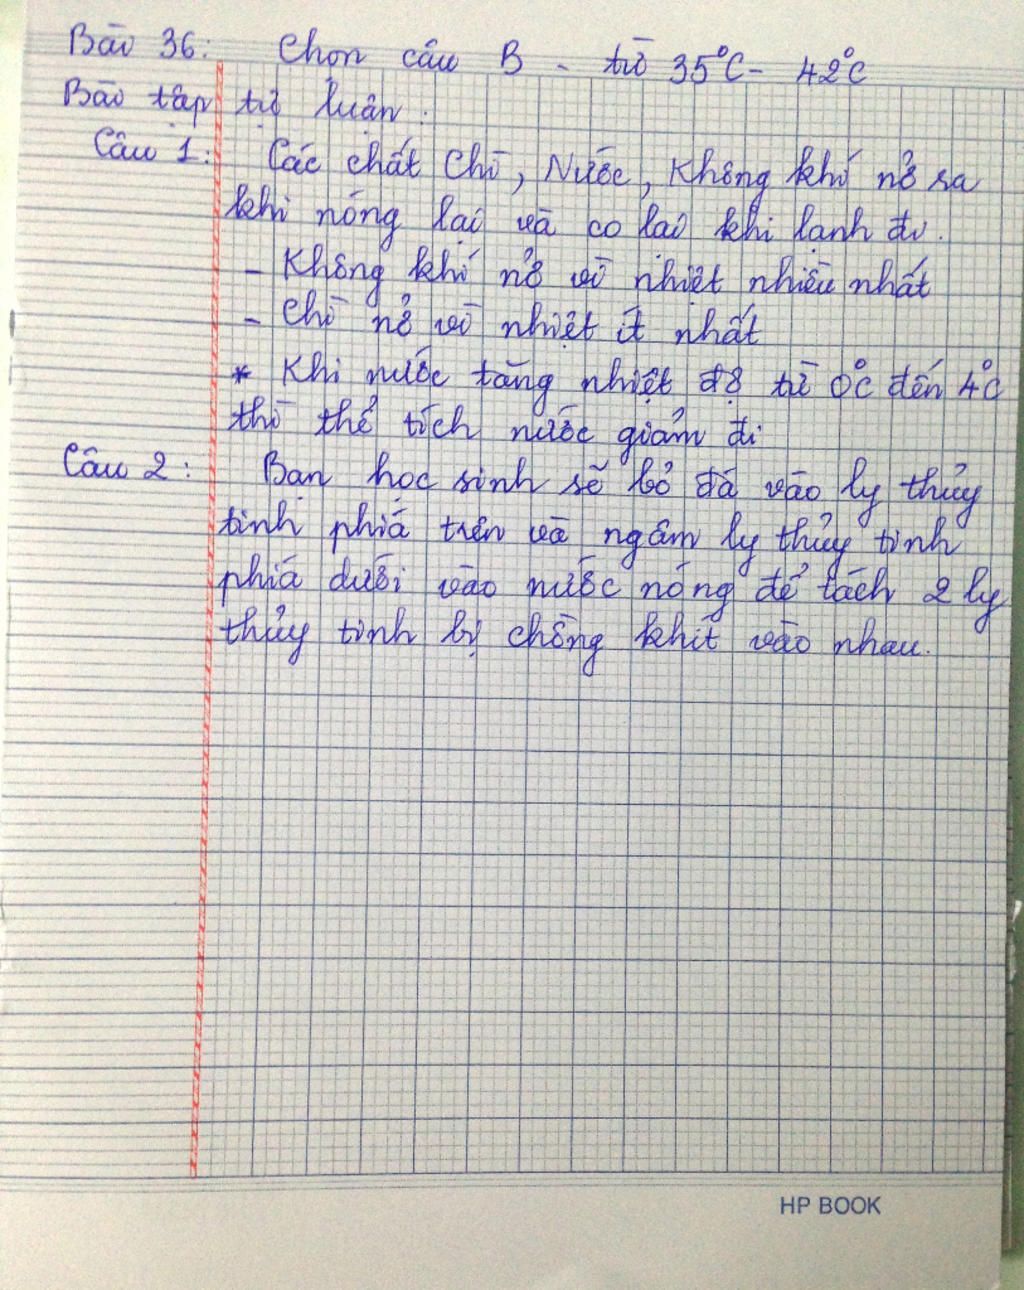 Bài 36: Chọn câu B - từ 35°C - 42°C
Bài tập tự luận.
Câu 1: Các chất Chì, Nước, Không khí nở ra
khi nóng lại và co lại khi lạnh đi.
- Không khí nở vì nhiệt nhiều nhất
- Chì nở vì nhiệt ít nhất
* Khi nước tăng nhiệt độ từ 0°C đến 4°C
thì thể tích nước giảm đi
Câu 2: Bạn học sinh sẽ bỏ đá vào ly thủy
tinh phía trên và ngâm ly thủy tinh
phía dưới vào nước nóng để tách 2 ly
thủy tinh bị chồng khít vào nhau.
HP BOOK